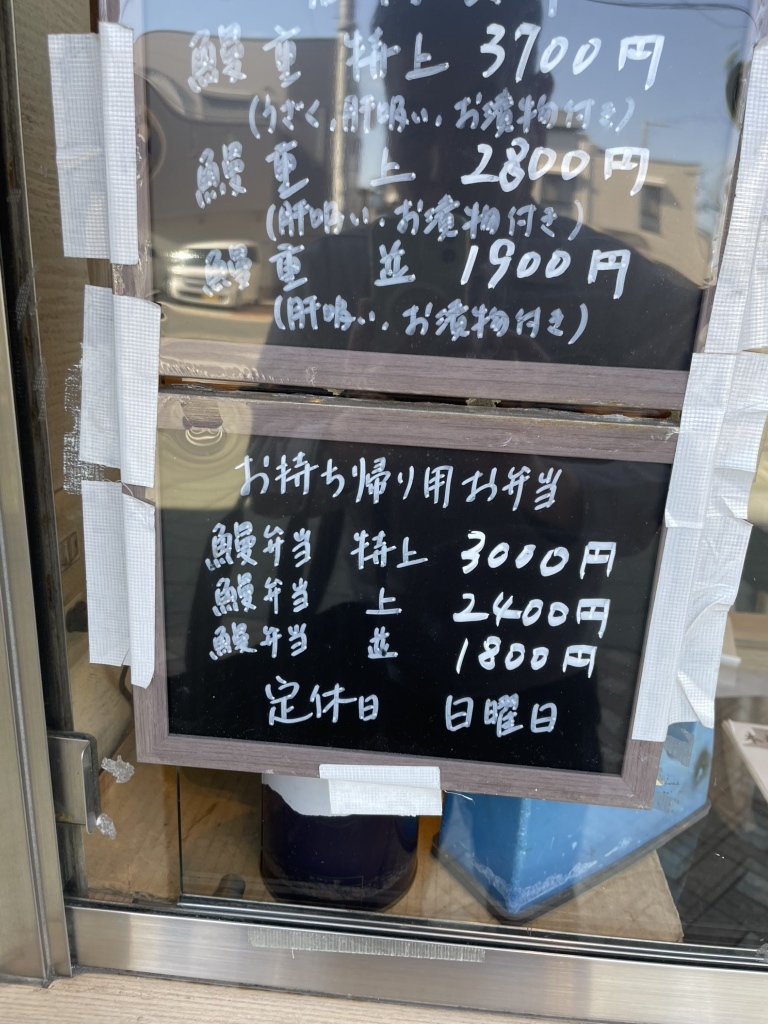 鰻重 特上 3700円
(うざく、肝吸い、お漬物付き)
鰻重 上 2800円
(肝吸い、お漬物付き)
鰻重 並 1900円
(肝吸い、お漬物付き)
お持ち帰り用お弁当
鰻弁当 特上 3000円
鰻弁当 上 2400円
鰻弁当 並 1800円
定休日 日曜日